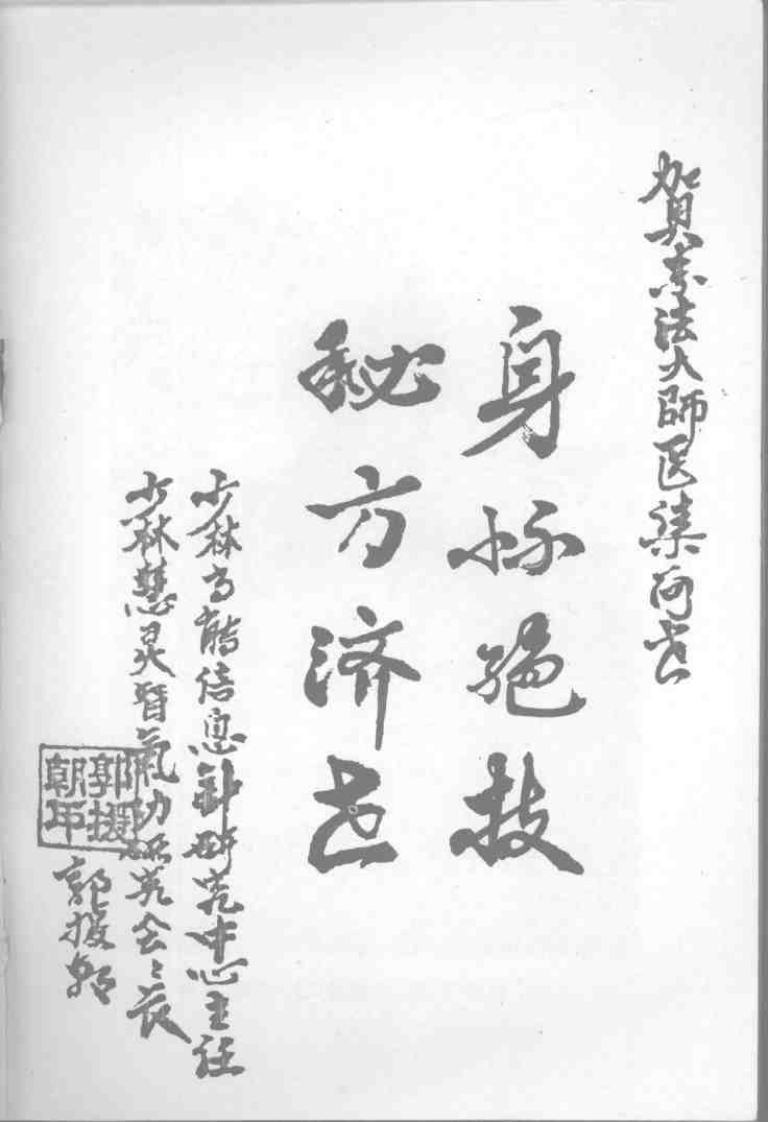 贺素法大师医问世
身怀绝技
秘方济世
少林能信息针研究中心主任
少林慧灵氣功研究会々长
郭援朝
郭援朝印